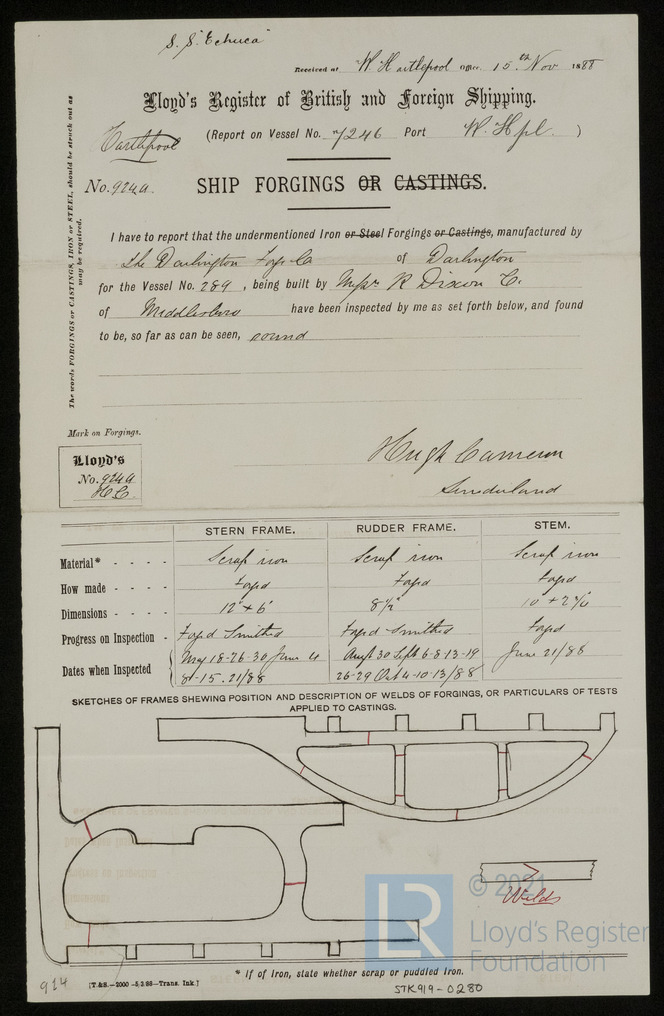 S.S. "Echuca"
Received at W. Hartlepool Office 15th Nov 1888
Lloyd's Register of British and Foreign Shipping.
Hartlepool
(Report on Vessel No. 7246 Port W. Hpl. )
No. 924a.
SHIP FORGINGS OR CASTINGS.
The words FORGINGS or CASTINGS, IRON or STEEL, should be struck out as
may be required.
I have to report that the undermentioned Iron or Steel Forgings or Castings, manufactured by
the Darlington Forge Co of Darlington
for the Vessel No. 289, being built by Messrs R Dixon & Co.
of Middlesbro have been inspected by me as set forth below, and found
to be, so far as can be seen, sound
Mark on Forgings.
Lloyd's
No. 924a
H.C.
Hugh Cameron
Sunderland
STERN FRAME. RUDDER FRAME. STEM.
Material* - - - - Scrap iron Scrap iron Scrap iron
How made - - - - Forged Forged Forged
Dimensions - - - - 12" + 6" 8½" 10 + 2⅝
Progress on Inspection - Forged Smithed Forged Smithed Forged
Dates when Inspected
May 18-26-30 June 4 Augt 30 Sept 6-8-13-19 June 21/88
8-15-21/88 26-29 Oct 4-10-13/88
SKETCHES OF FRAMES SHEWING POSITION AND DESCRIPTION OF WELDS OF FORGINGS, OR PARTICULARS OF TESTS
APPLIED TO CASTINGS.
Welds
© 2021
LR
Lloyd's Register
Foundation
* If of Iron, state whether scrap or puddled Iron.
914
[T.&S.—2000—5/3/88—Trans. Ink.]
STK919-0280